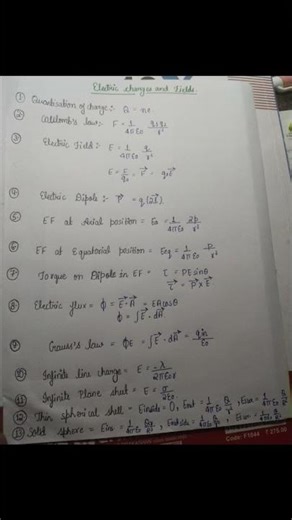 Electric charges and Fields
① Quantisation of charge:- Q = ne.
② Coulomb's law:- F = 1/4πε₀ q₁q₂/r²
③ Electric Field:- E = 1/4πε₀ q/r²
④ Electric Dipole:- P⃗ = q(2l⃗)
⑤ EF at Axial position = Ea = 1/4πε₀ 2p/r³
⑥ EF at Equatorial position = Eeq = 1/4πε₀ p/r³
⑦ Torque on Dipole in EF = τ = PE sinθ
τ⃗ = P⃗ × E⃗
⑧ Electric flux = ϕ = E⃗·A⃗ = EA cosθ
ϕ = ∫E⃗·dA⃗
⑨ Gauss's law = ϕE = ∫E⃗·dA⃗ = qin/ε₀
⑩ Infinite line charge = E = λ/2πε₀r
⑪ Infinite Plane sheet = E = σ/2ε₀
⑫ Thin spherical shell = Einside = 0, Eout = 1/4πε₀
⑬ Solid sphere